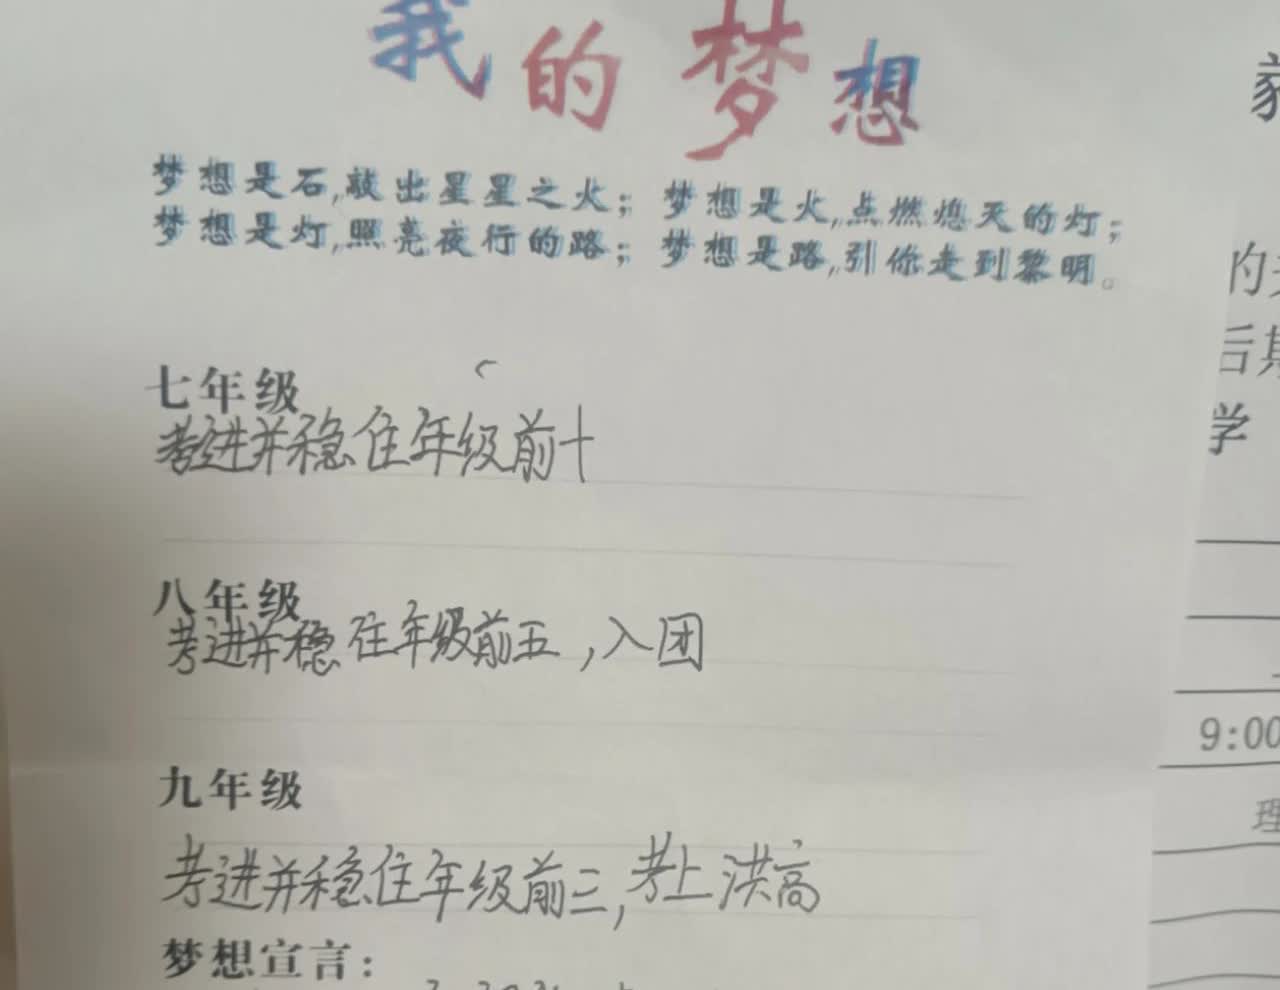 我的梦想
梦想是石,敲出星星之火；梦想是火,点燃熄灭的灯；
梦想是灯,照亮夜行的路；梦想是路,引你走到黎明。
七年级
考进并稳住年级前十
八年级
考进并稳住年级前五,入团
九年级
考进并稳住年级前三,考上洪高
梦想宣言：
的
后期
学
9:00
理